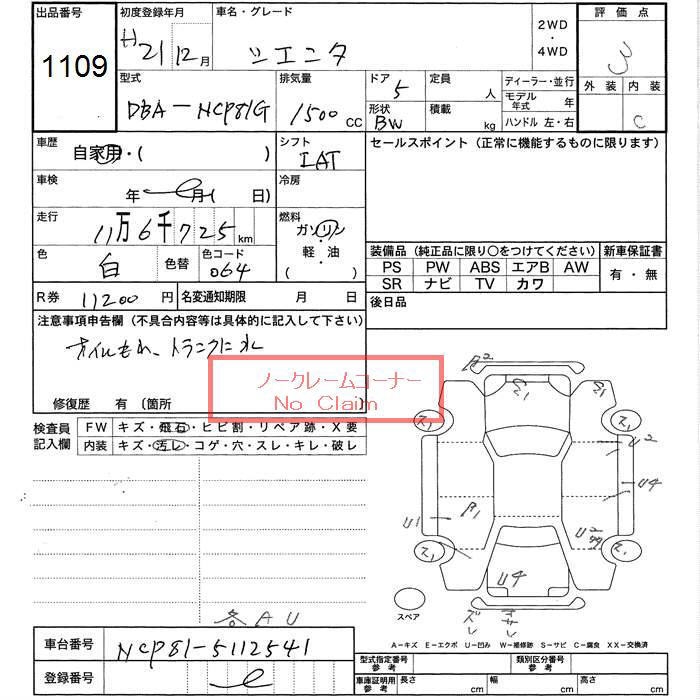 出品番号 初度登録年月 車名・グレード 2WD ・ 4WD 評価点
1109 H21 12月 シエンタ 3
型式 排気量 ドア 定員 ディーラー・並行 外装 内装
DBA-NCP81G 1500 CC 5 人 モデル年式 年
形状 積載 ハンドル 左・右 C
BW kg
車歴 自家用・( ) シフト セールスポイント (正常に機能するものに限ります)
IAT
車検 年 月( 日) 冷房
走行 11万6千725km 燃料 ガソリン
軽・油
( )
色 白 色替 色コード 064
装備品 (純正品に限り〇をつけてください) 新車保証書
PS PW ABS エアB AW 有・無
SR ナビ TV カワ
R券 11200円 名変通知期限 月 日 後日品
注意事項申告欄 (不具合内容等は具体的に記入して下さい)
オイルもれ、トランクに水
ノークレームコーナー
No Claim
修復歴 有 〔箇所 〕
検査員記入欄 FW キズ・飛石・ヒビ割・リペア跡・X要
内装 キズ・汚レ・コゲ・穴・スレ・キレ・破レ
A2
Σ1 Σ1
ス1 ス1
U2
U4
A1
U1
U2
ス1 ス1
U4
スペア
各AU
A-キズ E-エクボ U-凹み W-補修跡 S-サビ C-腐食 XX-交換済
車台番号 NCP81-5112541
登録番号
型式指定番号 参考 類別区分番号 参考
車庫証明用 参考 長さ cm 幅 cm 高さ cm